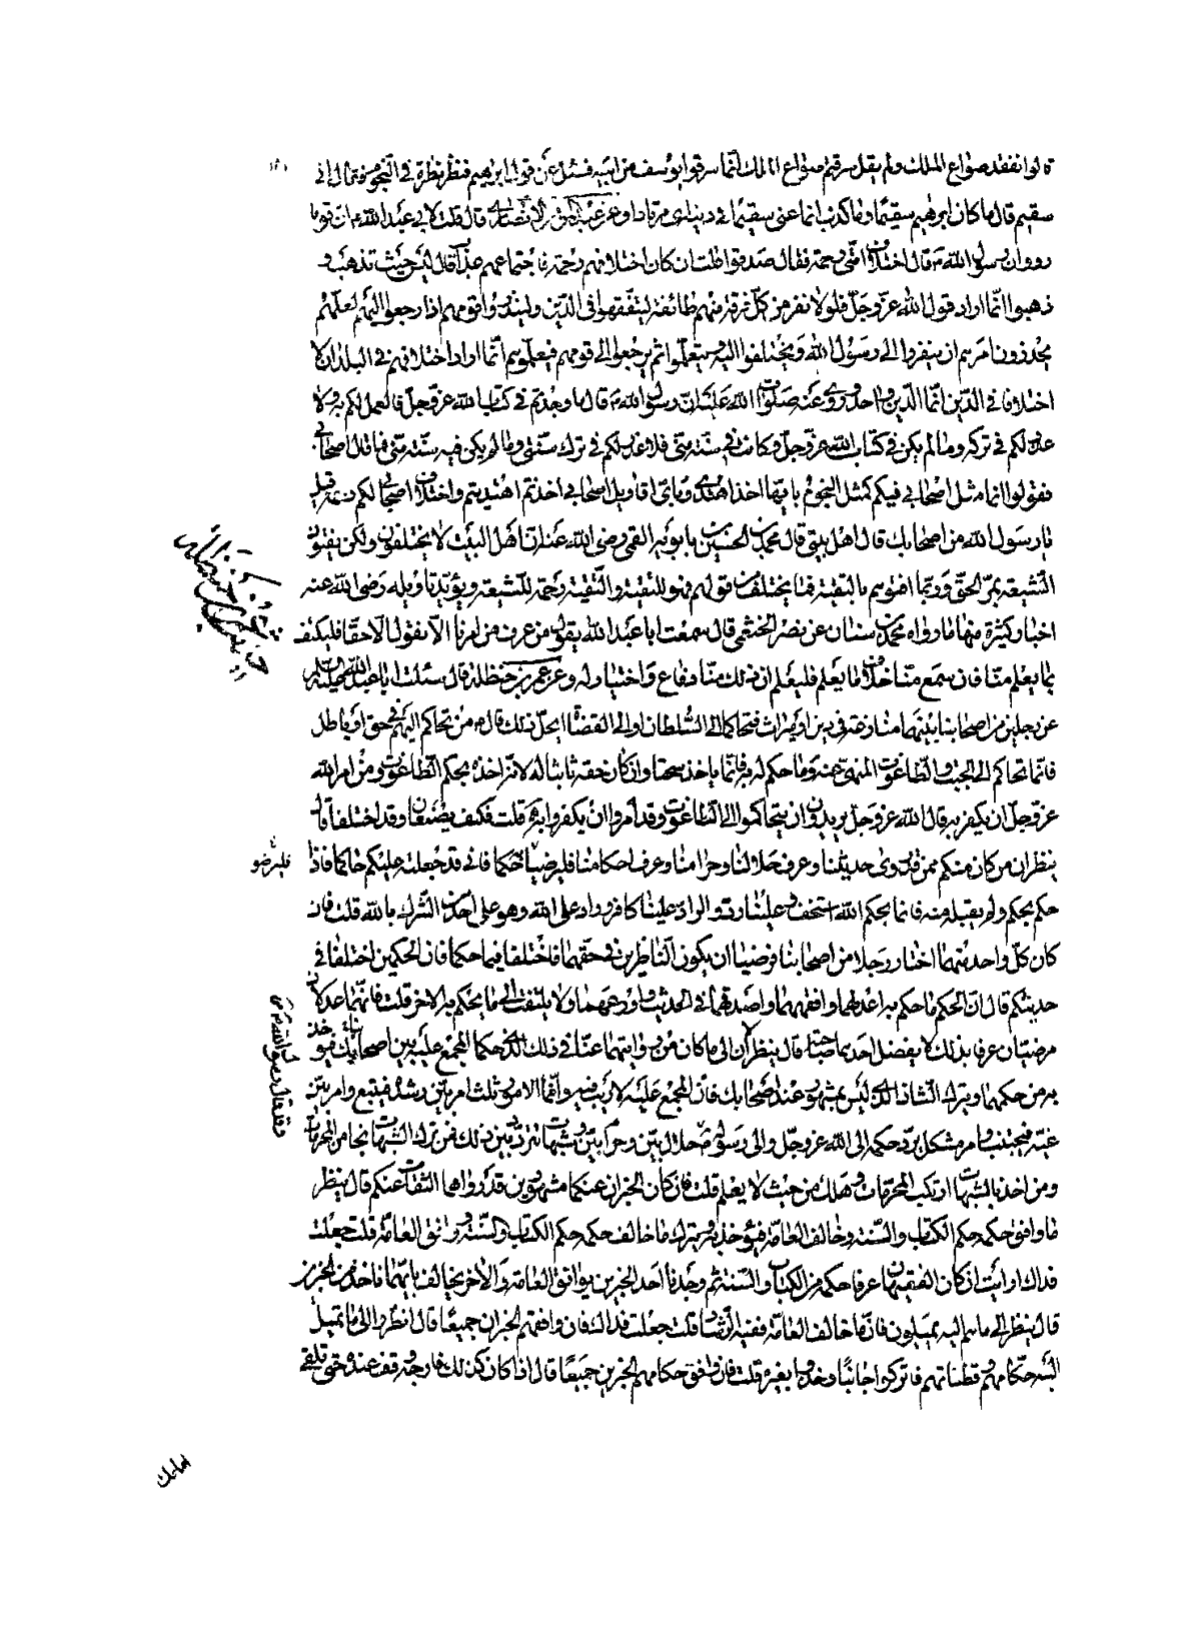 قالوا نفقد صواع الملك ولم يقل سرقتم صواع الملك انما سرقوا يوسف من ابيه فسئل عن قول ابراهيم فنظر نظرة في النجوم فقال اني
سقيم قال ما كان ابراهيم سقيما وما كذب انما عنى سقيما في دينه اى مرتادا وعن عبد المؤمن الانصارى قال قلت لابي عبد الله ع ان قوما
رووا ان رسول الله ص قال اختلاف امتى رحمة فقال صدقوا قلت ان كان اختلافهم رحمة فاجتماعهم عذاب قال ليس حيث تذهب و
ذهبوا انما اراد قول الله عز وجل فلولا نفر من كل فرقة منهم طائفة ليتفقهوا فى الدين ولينذروا قومهم اذا رجعوا اليهم لعلهم
يحذرون فامرهم ان ينفروا الى رسول الله ويختلفوا اليه فيتعلموا ثم يرجعوا الى قومهم فيعلموهم انما اراد اختلافهم فى البلدان لا
اختلافا في الدين انما الدين واحد وروى عنه صلوات الله عليه ان رسول الله ص قال ما وجدتم في كتاب الله عز وجل فالعمل لكم به ولا
عذر لكم في تركه وما لم يكن في كتاب الله عز وجل وكانت فيه سنة منى فلا عذر لكم فى ترك سنتى وما لم يكن فيه سنة منى فما قال اصحابى
فقولوا انما مثل اصحابي فيكم كمثل النجوم بايها اخذ اهتدى وباى اقاويل اصحابي اخذتم اهتديتم واختلاف اصحابى لكم رحمة قيل
يا رسول الله من اصحابك قال اهل بيتى قال محمد بن الحسين بن بابويه القمى رضى الله عنه ان اهل البيت لا يختلفون ولكن يفتون
الشيعة بمر الحق وربما افتوهم بالتقية فما يختلف من قولهم فهو للتقية والتقية رحمة للشيعة ويؤيد تاويله رضى الله عنه
اخبار كثيرة منها ما رواه محمد بن سنان عن نصر الخثعمى قال سمعت ابا عبد الله يقول من عرف من امرنا الا نقول الا حقا فليكتف
بما يعلم منا فان سمع منا خلاف ما يعلم فليعلم ان ذلك منا دفاع واختيار له وعن عمر بن حنظلة قال سئلت ابا عبد الله
عن رجلين من اصحابنا بينهما منازعة فى دين او ميراث فتحاكما الى السلطان او الى القضاة ايحل ذلك قال ع من تحاكم اليهم فى حق او باطل
فانما تحاكم الى الجبت والطاغوت المنهى عنه وما حكم له به فانما ياخذ سحتا وان كان حقه ثابتا له لانه اخذه بحكم الطاغوت ومن امر الله
عز وجل ان يكفر به قال الله عز وجل يريدون ان يتحاكموا الى الطاغوت وقد امروا ان يكفروا به قلت فكيف يصنعان وقد اختلفا قال
ينظران من كان منكم ممن قد روى حديثنا وعرف حلالنا وحرامنا وعرف احكامنا فليرضيا حكما فانى قد جعلته عليكم حاكما فاذا
فليرضوا
حكم بحكم ولم يقبله منه فانما بحكم الله استخف وعلينا رد والراد علينا كافر وراد على الله وهو على حد من الشرك بالله قلت فان
كان كل واحد منهما اختار رجلا من اصحابنا فرضيا ان يكون الناظرين في حقهما فاختلفا فيما حكما فان الحكمين اختلفا فى
حديثكم قال ان الحكم ما حكم به اعدلهما وافقههما واصدقهما في الحديث واورعهما ولا يلتفت الى ما يحكم به الاخر قلت فانهما عدلان
مرضيان عرفا بذلك لا يفضل احدهما صاحبه قال ينظر الان الى ما كان من روايتهما عنا فى ذلك الذى حكما المجمع عليه بين اصحابك فيؤخذ
به من حكمهما ويترك الشاذ الذى ليس بمشهور عند اصحابك فان المجمع عليه لا ريب فيه وانما الامور ثلث امر بين رشده فيتبع وامر بين
غيه فيجتنب وامر مشكل يرد حكمه الى الله عز وجل والى رسوله ص حلال بين وحرام بين وشبهات تتردد بين ذلك فمن ترك الشبهات نجا من المحرمات
ومن اخذ بالشبهات ارتكب المحرمات وهلك من حيث لا يعلم قلت فان كان الخبران عنكما مشهورين قد رواهما الثقات عنكم قال ينظر
ما وافق حكمه حكم الكتاب والسنة وخالف العامة فيؤخذ به ويترك ما خالف حكمه حكم الكتاب والسنة ووافق العامة قلت جعلت
فداك ارايت ان كان الفقيهان عرفا حكمه من الكتاب والسنة ثم وجدنا احد الخبرين يوافق العامة والاخر يخالف بايهما ناخذ من الخبرين
قال ينظر الى ما هم اليه يميلون فان ما خالف العامة ففيه الرشاد قلت جعلت فداك فان وافقهم الخبران جميعا قال انظروا الى ما تميل
اليه حكامهم وقضاتهم فاتركوا جانبا وخذوا بغيره قلت فان وافق حكامهم الخبرين جميعا قال اذا كان كذلك فارجه وقف عنده حتى تلقى
امامك